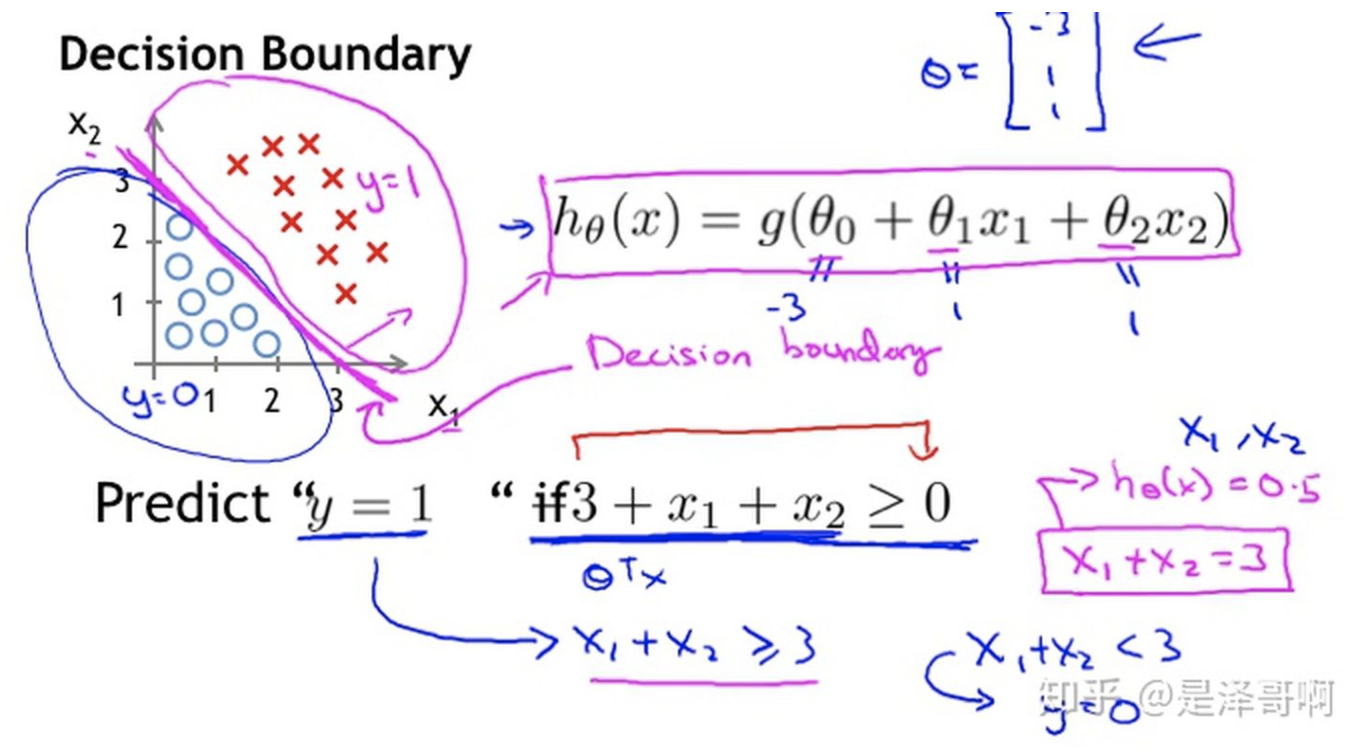 Decision Boundary
θ = [-3 1 1]
x₂
3
2
1
y=1
y=0
1 2 3
x₁
hθ(x) = g(θ₀ + θ₁x₁ + θ₂x₂)
-3 1 1
Decision boundary
Predict “y = 1 “ if3 + x₁ + x₂ ≥ 0
θᵀx
x₁ + x₂ ≥ 3
x₁, x₂
hθ(x) = 0.5
x₁ + x₂ = 3
x₁ + x₂ < 3
y=0
知乎 @是泽哥啊